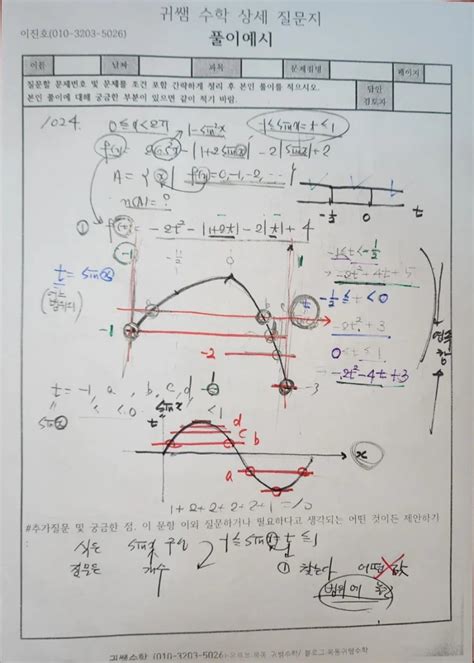 귀쌤 수학 상세 질문지
이진호(010-3203-5026)
풀이예시
이름 날짜 과목 문제집명 페이지
질문할 문제번호 및 문제를 조건 포함 간략하게 정리 후 본인 풀이를 적으시오.
본인 풀이에 대해 궁금한 부분이 있으면 같이 적기 바람.
답인
검토자
1024.
0≤x<2π
1-sin²x
-1≤sinx=t≤1
f(x)=2cos²x-|1+2sinx|-2|sinx|+2
A={x|f(x)=0,-1,-2,...}
n(A)=?
① f(x)=-2t²-|1+2t|-2|t|+4
-½ 0 t
-1 -½ 0 1
t=sinx
-1≤t<-½
-2t²+4t+5
-½≤t<0
-2t²+3
0≤t≤1
-2t²-4t+3
-1
-2
-3
t=-1, a, b, c, d, 1
<0 <1
sinx
t
d
c b
a
x
1+2+2+2+2+1=10
#추가질문 및 궁금한 점. 이 문항 이외 질문하거나 필요하다고 생각되는 어떤 것이든 제안하기
실근 sinx 구간
질문은 개수
-1≤sinx=t≤1
① 찾는다 어떤 값
범위에
귀쌤수학 (010-3203-5026)